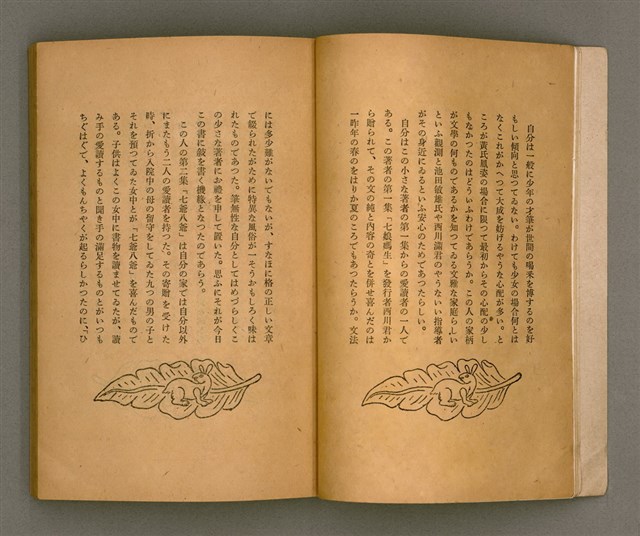 自分は一般に少年の才筆が世間の喝采を博するのを好
もしい傾向と思つてゐない。わけても少女の場合何とは
なくこれがかへつて大成を妨げるやうな心配が多い。と
ころが黄氏鳳姿の場合に限つて最初からその心配の少し
もなかつたのはどういふわけであらうか。この人の家柄
が文學の何ものであるかを知つてゐる文雅な家庭らしい
といふ觀測と池田敏雄氏や西川滿君のやうないい指導者
がその身近にゐるといふ安心のためであつたらしい。
自分はこの小さな著者の第一集からの愛讀者の一人で
ある。この著者の第一集「七娘媽生」を發行者西川君か
ら贈られて、その文の純と内容の奇とを併せ喜んだのは
一昨年の春のをはりか夏のころでもあつたらうか。文法
には多少難がないでもないが、すなほに格の正しい文章
で綴られたがために特異な風俗が一そうおもしろく味は
れたものであつた。筆無性な自分としてはめづらしくこ
の少さな著者にお禮を申して置いた。思ふにそれが今日
この書に餞を書く機縁となつたのであらう。
この人の第二集「七爺八爺」は自分の家では自分以外
にまたもう二人の愛讀者を持つた。その寄贈を受けた
時、折から入院中の母の留守をしてゐた九つの男の子と
それを預つてゐた女中とが「七爺八爺」を喜んだもので
ある。子供はよくこの女中に書物を讀ませてゐたが、讀
み手の愛讀するものと聞き手の滿足するものとがいつも
ちぐはぐで、よくもんちやくが起るらしかつたのに、ひ